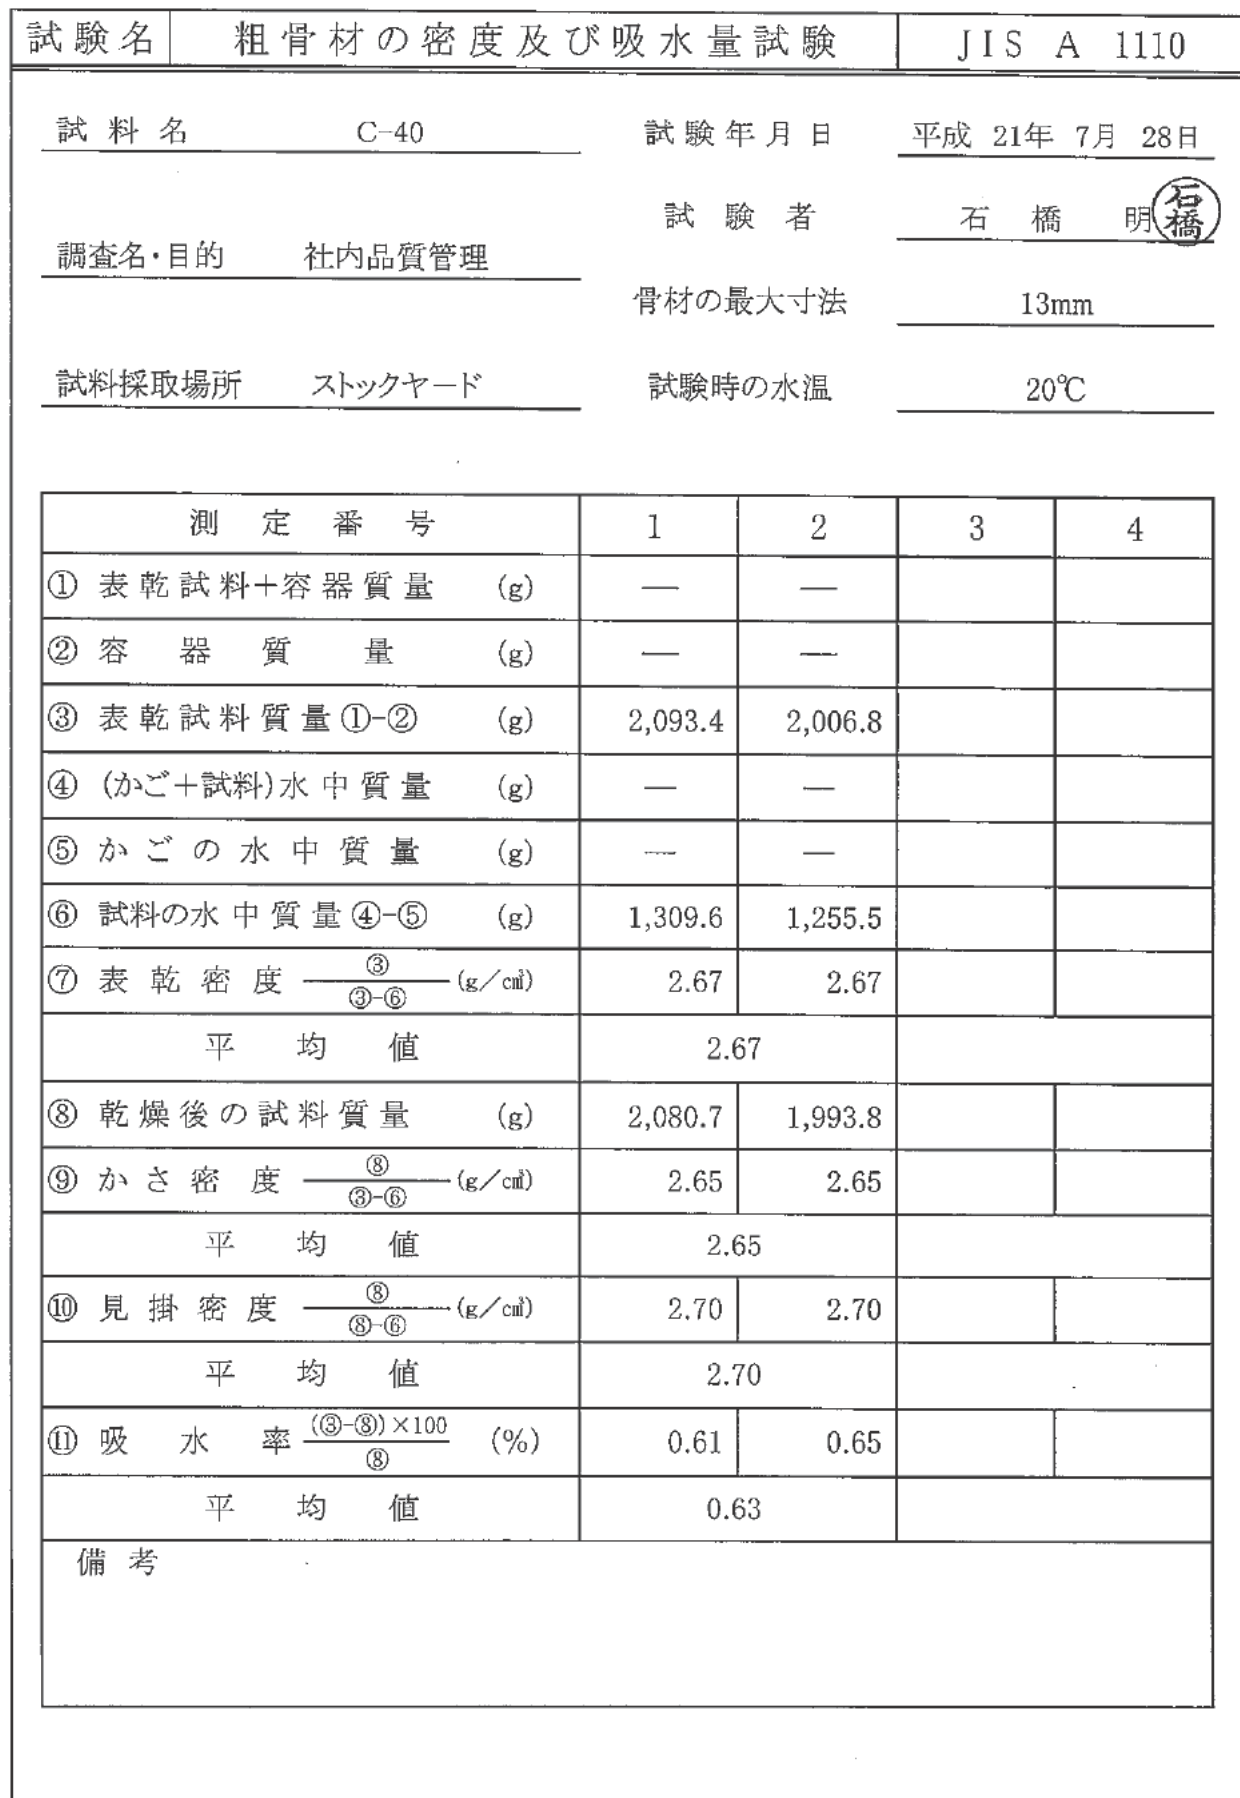 試験名 粗骨材の密度及び吸水量試験 JIS A 1110
試料名 C-40 試験年月日 平成 21年 7月 28日
試験者 石橋 明 石橋
調査名・目的 社内品質管理
骨材の最大寸法 13mm
試料採取場所 ストックヤード 試験時の水温 20℃
測定番号 1 2 3 4
① 表乾試料+容器質量 (g) — —
② 容器質量 (g) — —
③ 表乾試料質量①-② (g) 2,093.4 2,006.8
④ (かご+試料)水中質量 (g) — —
⑤ かごの水中質量 (g) — —
⑥ 試料の水中質量④-⑤ (g) 1,309.6 1,255.5
⑦ 表乾密度 ③/③-⑥ (g/㎤) 2.67 2.67
平均値 2.67
⑧ 乾燥後の試料質量 (g) 2,080.7 1,993.8
⑨ かさ密度 ⑧/③-⑥ (g/㎤) 2.65 2.65
平均値 2.65
⑩ 見掛密度 ⑧/⑧-⑥ (g/㎤) 2.70 2.70
平均値 2.70
⑪ 吸水率 (③-⑧)×100/⑧ (%) 0.61 0.65
平均値 0.63
備考